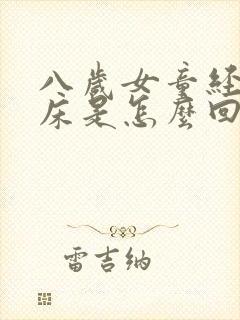 八歲女童經
床是怎麼回
雷吉纳